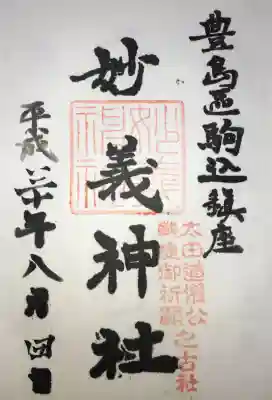 豊島區駒込鎮座
太田道灌公之古社
戦捷御祈願
妙義神社
平成二十年八月四日